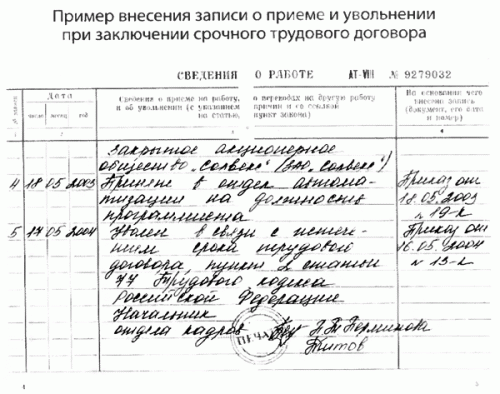 Пример внесения записи о приеме и увольнении
при заключении срочного трудового договора
СВЕДЕНИЯ О РАБОТЕ АТ-VIII № 9279032
№ записи
Дата
число месяц год
Сведения о приеме на работу, о переводах на другую работу
и об увольнении (с указанием причин и со ссылкой
на статью, пункт закона)
На основании чего
внесена запись
(документ, его дата
и номер)
2 4
Закрытое акционерное
общество „Солвекс" (ЗАО „Солвекс")
4 18 05 2003 Принят в отдел автома- Приказ от
тизации на должность 18.05.2003
программиста № 19-к
5 17 05 2004 Уволен в связи с истече- Приказ от
нием срока трудового 16.05.2004
договора, пункт 2 статьи № 13-к
77 Трудового кодекса
Российской Федерации
Начальник
отдела кадров Н.Т. Перминова
Титов
ПЕЧАТЬ